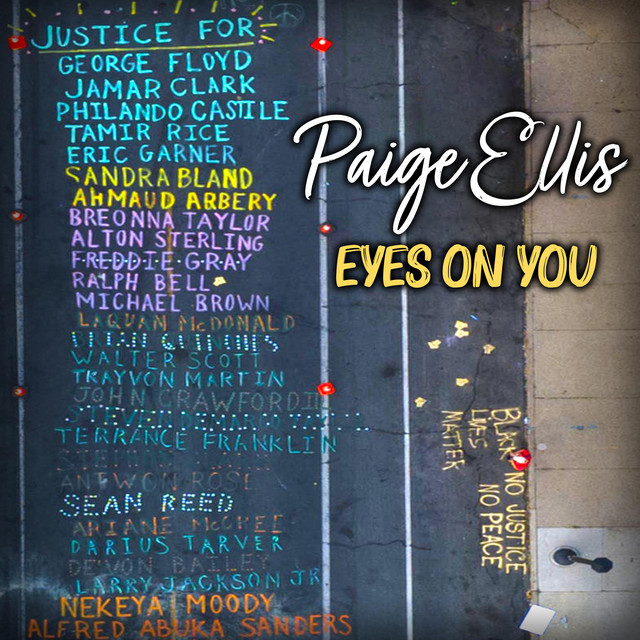 JUSTICE FOR
GEORGE FLOYD
JAMAR CLARK
PHILANDO CASTILE
TAMIR RICE
ERIC GARNER
SANDRA BLAND
AHMAUD ARBERY
BREONNA TAYLOR
ALTON STERLING
FREDDIE GRAY
RALPH BELL
MICHAEL BROWN
LAQUAN McDONALD
BRIAN QUINONES
WALTER SCOTT
TRAYVON MARTIN
JOHN CRAWFORD III
STEVEN DEMARCO
TERRANCE FRANKLIN
ANTWON ROSE
SEAN REED
ARIANE McCREE
DARIUS TARVER
DE'VON BAILEY
LARRY JACKSON JR
NEKEYA MOODY
ALFRED ABUKA SANDERS
Paige Ellis
EYES ON YOU
BLACK
LIVES
MATTER
NO JUSTICE
NO PEACE